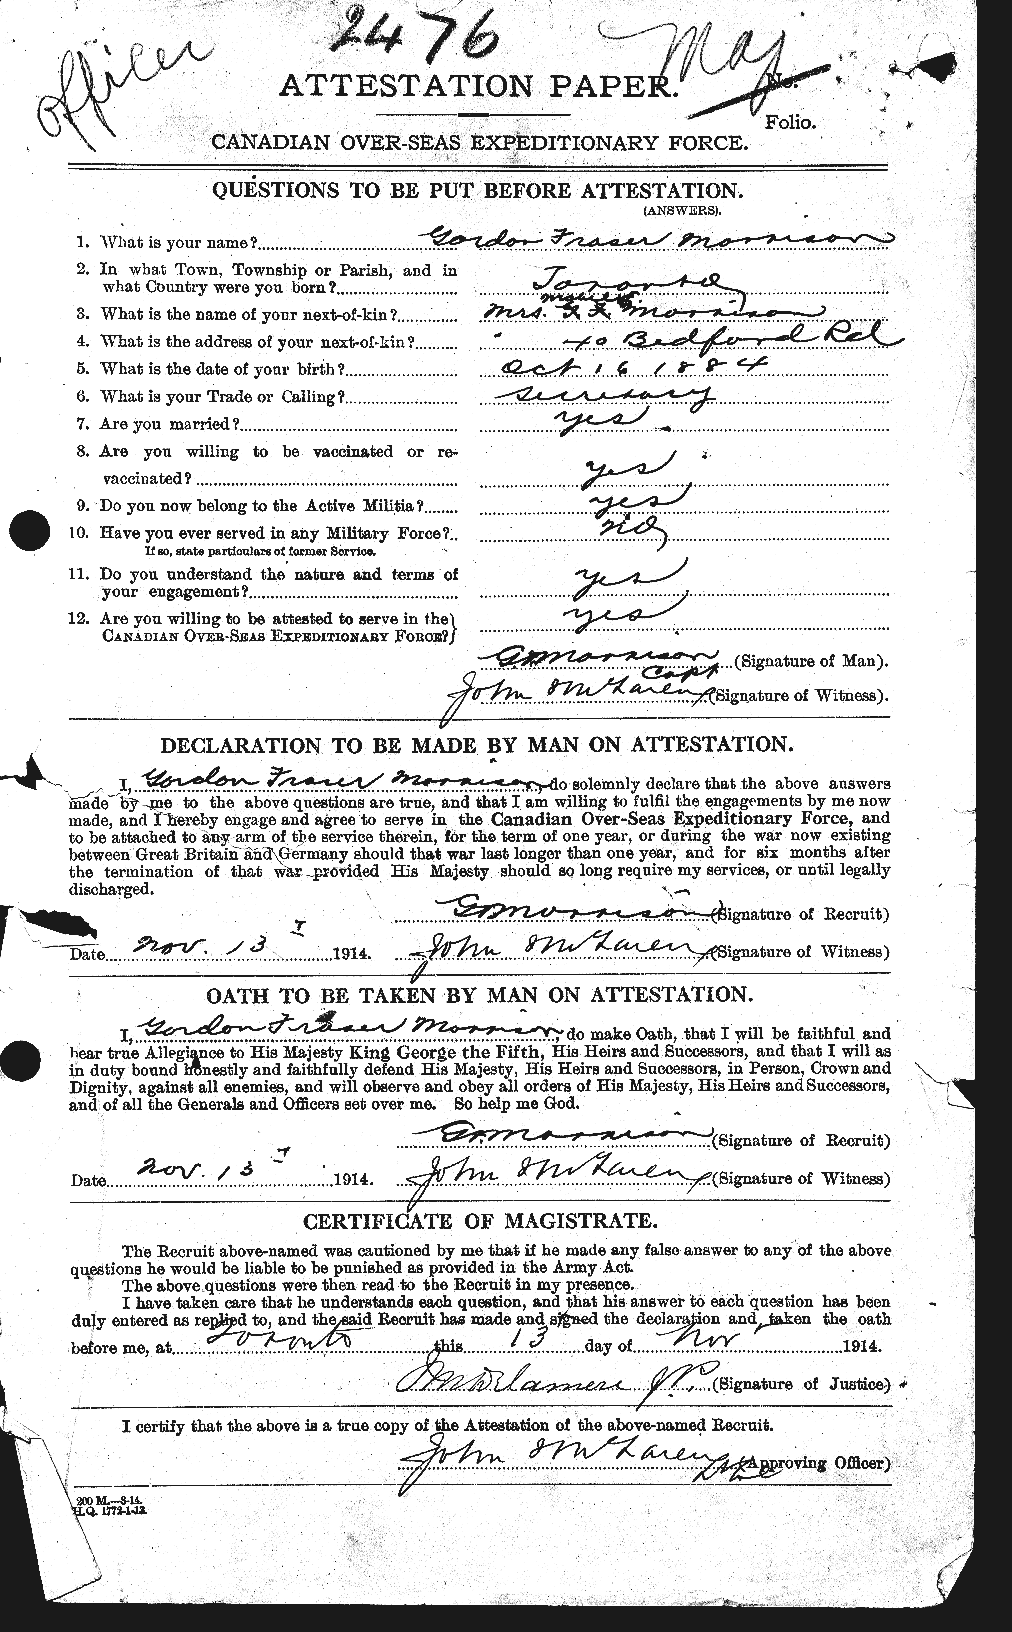 2476
Officer
Maj
ATTESTATION PAPER.
No.
Folio.
CANADIAN OVER-SEAS EXPEDITIONARY FORCE.
QUESTIONS TO BE PUT BEFORE ATTESTATION.
(ANSWERS).
1. What is your name? Gordon Fraser Morrison
2. In what Town, Township or Parish, and in
what Country were you born? Toronto
3. What is the name of your next-of-kin? Mrs. Morrison
4. What is the address of your next-of-kin? 40 Bedford Rd
5. What is the date of your birth? Oct 16 1884
6. What is your Trade or Calling? Secretary
7. Are you married? yes
8. Are you willing to be vaccinated or re-
vaccinated? yes
9. Do you now belong to the Active Militia? yes
10. Have you ever served in any Military Force? No
If so, state particulars of former Service.
11. Do you understand the nature and terms of
your engagement? yes
12. Are you willing to be attested to serve in the
CANADIAN OVER-SEAS EXPEDITIONARY FORCE? yes
GFMorrison (Signature of Man).
Capt
John McLaren (Signature of Witness).
DECLARATION TO BE MADE BY MAN ON ATTESTATION.
I, Gordon Fraser Morrison, do solemnly declare that the above answers
made by me to the above questions are true, and that I am willing to fulfil the engagements by me now
made, and I hereby engage and agree to serve in the Canadian Over-Seas Expeditionary Force, and
to be attached to any arm of the service therein, for the term of one year, or during the war now existing
between Great Britain and Germany should that war last longer than one year, and for six months after
the termination of that war provided His Majesty should so long require my services, or until legally
discharged.
GFMorrison (Signature of Recruit)
Date Nov. 13 1914. John McLaren (Signature of Witness)
OATH TO BE TAKEN BY MAN ON ATTESTATION.
I, Gordon Fraser Morrison, do make Oath, that I will be faithful and
bear true Allegiance to His Majesty King George the Fifth, His Heirs and Successors, and that I will as
in duty bound honestly and faithfully defend His Majesty, His Heirs and Successors, in Person, Crown and
Dignity, against all enemies, and will observe and obey all orders of His Majesty, His Heirs and Successors,
and of all the Generals and Officers set over me. So help me God.
GFMorrison (Signature of Recruit)
Date Nov. 13 1914. John McLaren (Signature of Witness)
CERTIFICATE OF MAGISTRATE.
The Recruit above-named was cautioned by me that if he made any false answer to any of the above
questions he would be liable to be punished as provided in the Army Act.
The above questions were then read to the Recruit in my presence.
I have taken care that he understands each question, and that his answer to each question has been
duly entered as replied to, and the said Recruit has made and signed the declaration and taken the oath
before me, at Toronto this 13 day of Nov 1914.
J.P. (Signature of Justice)
I certify that the above is a true copy of the Attestation of the above-named Recruit.
John McLaren (Approving Officer)
200 M.—8-14.
H.Q. 1772-1-13.